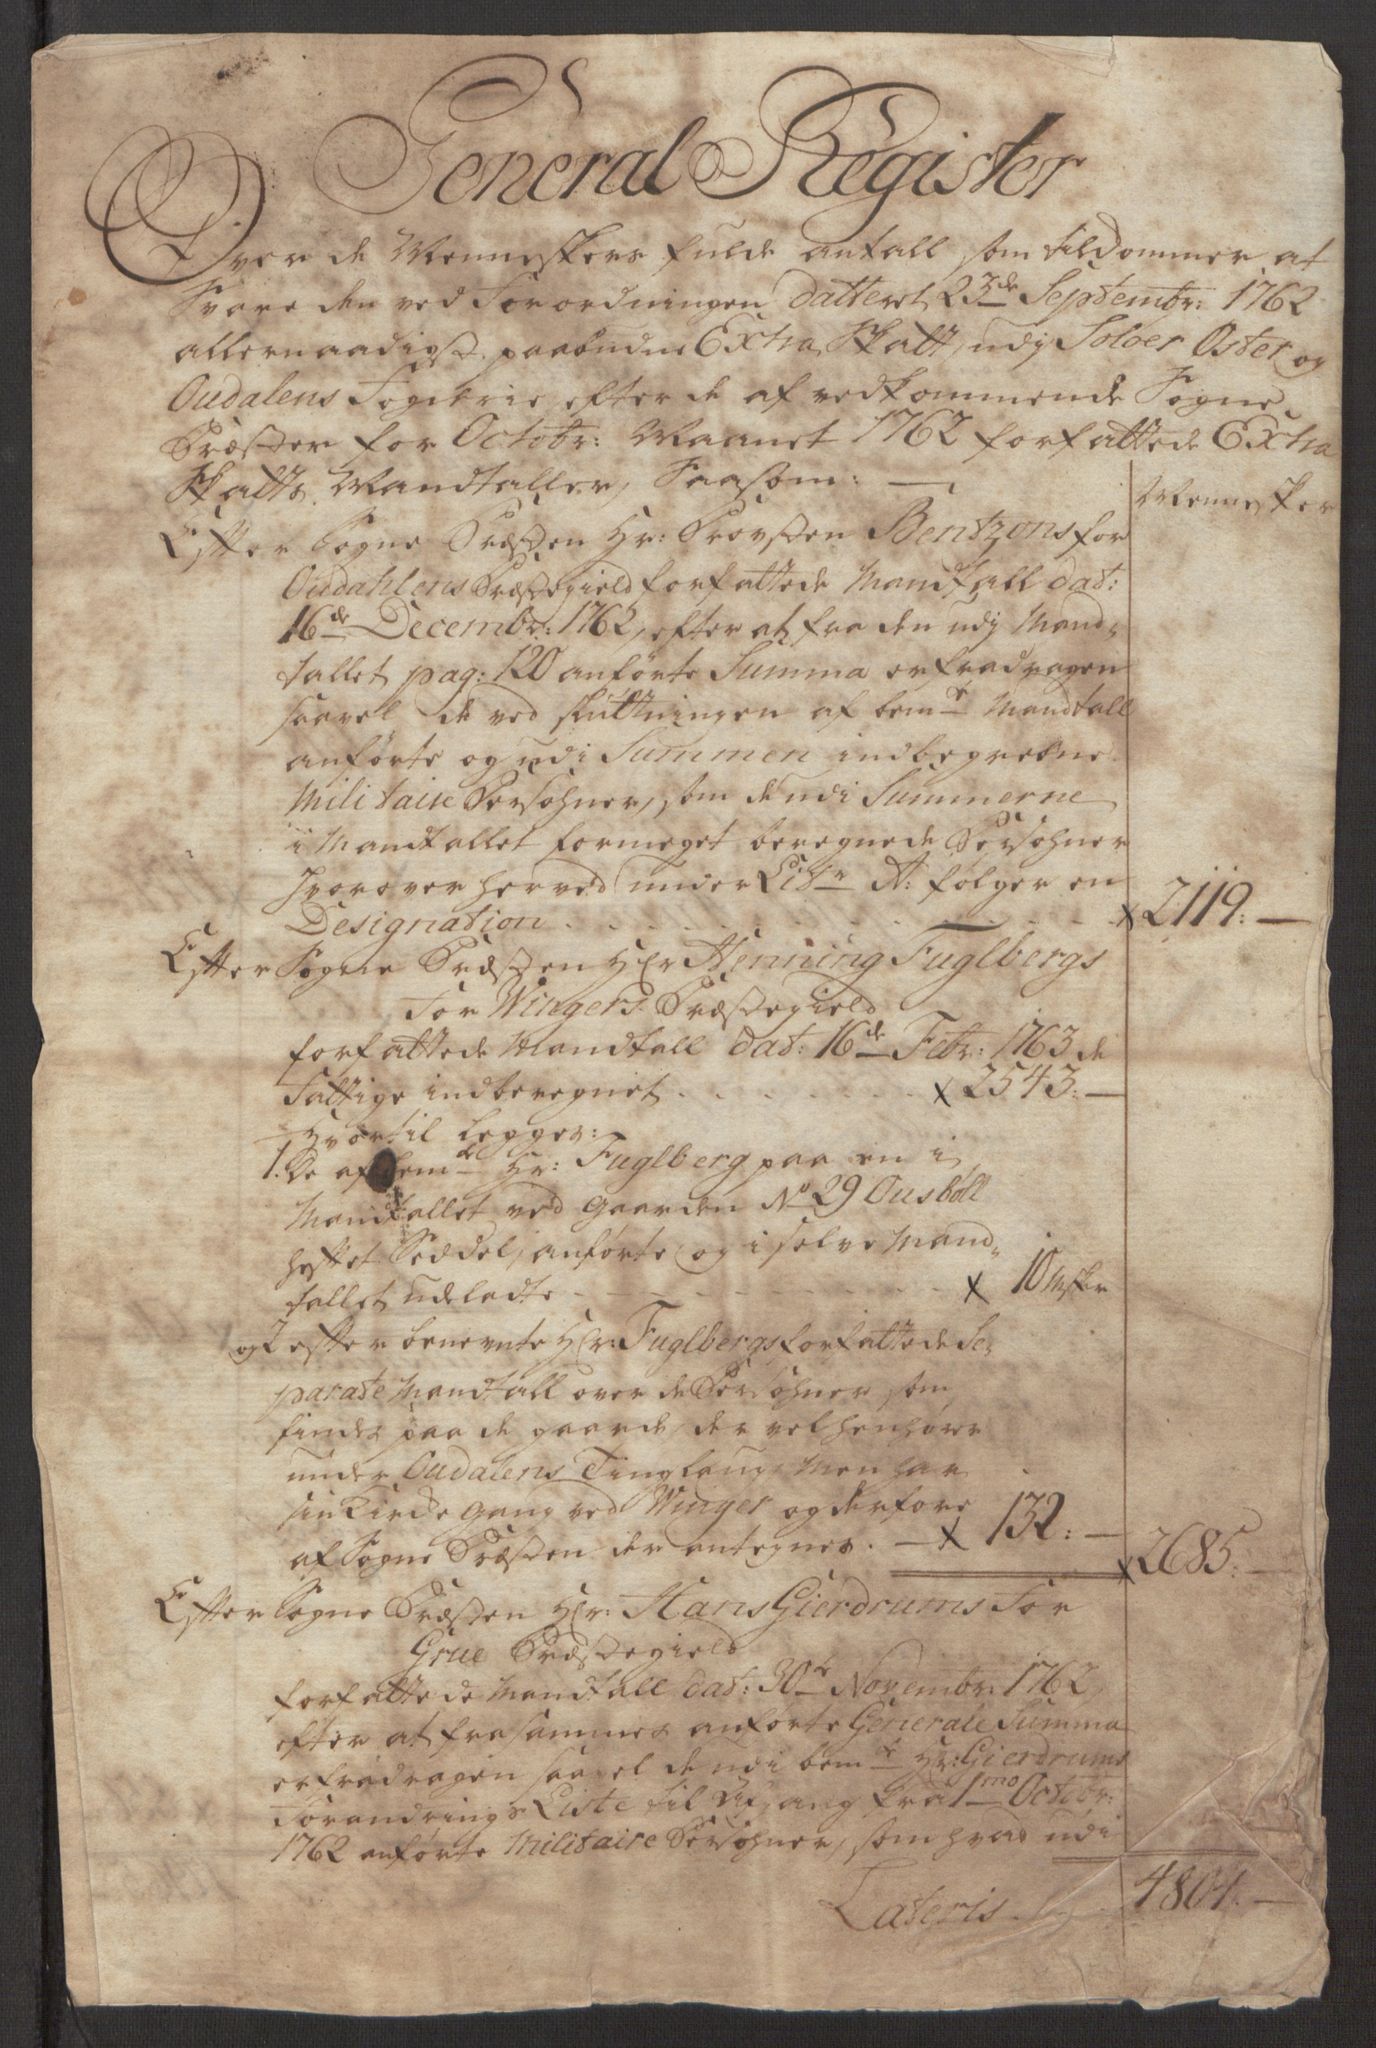 General Register
Over de Menneskers fulde antall som tilkommer at
Svare den ved Forordningen Datteret 23de Septembr: 1762
allernaadigst paabudne Extra Skatt, udj Soloer Oster og
Oudalens Fogderie, efter de af vedkommende Sogne
Præster for Octobr: Maanet 1762 forfattede Extra
Skatts Mandtaller, Saasom: —
Mennesker
Efter Sogne Præsten Hr: Provsten Bentzons for
Oudahlens Præstegield forfattede Mandtall dat:
16de Decembr: 1762, efter at fra den udj Mand-
tallet pag: 120 anførte Summa er fradragen
saavel de ved slutningen af bemte Mandtall
anførte og udi Summen indbegrebne
Militaire Persohner, som de udi Summerne
i Mandtallet formeget beregnede Persohner
hvorover herved under Litr A: følger en
Designation . . . . . x 2119: —
Efter Sogne Præsten Hr Henning Fuglbergs
for Wingers Præstegield
forfattede Mandtall dat: 16de Febr: 1763 de
Fattige indberegnet . . . . . x 2543: —
Hvortil legges:
1. De af bemte Hr: Fuglberg paa en i
Mandtallet ved gaarden No 29 Ousbøll
heftet Seddel, anførte og i selve Mand-
tallet udeladte . . . . . x 10 Mskr
og 2 efter benevnte Hr: Fuglbergs forfattede Se-
parate Mandtall over de Persohner som
findes paa de gaarde, der vel henhører
under Oudalens Tinglaug, Men har
sin Kirke gang ved Winger og derfore
af Sogne Præsten der antegnes. — x 132: —
x 2685: —
Efter Sogne Præsten Hr: Hans Gierdrums For
Grue Præstegield
forfattede Mandtall dat: 30te Novembr: 1762,
efter at fra sammes anførte Generale Summa
er fradragen saavel de udi bemte Hr: Gierdrums
Forandrings Liste til Afgang fra 1mo Octobr:
1762 anførte Militaire Persohner, som hvad udi
Lateris . . . 4804: —